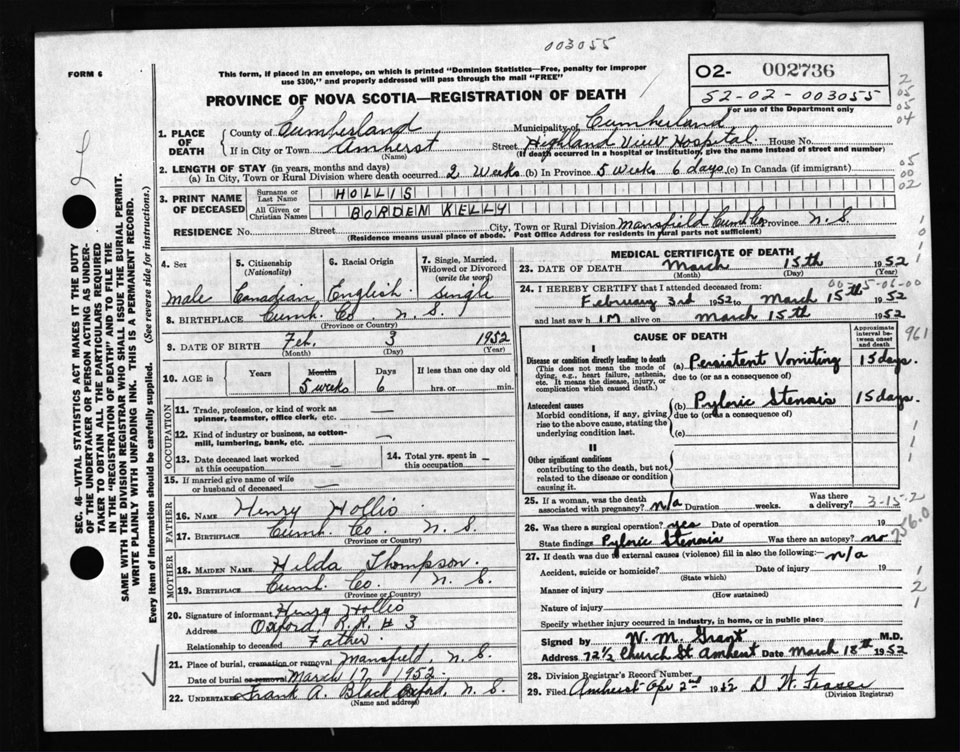 003055
FORM 6
This form, if placed in an envelope, on which is printed "Dominion Statistics—Free, penalty for improper
use $300," and properly addressed will pass through the mail "FREE"
02- 002736
52-02-003055
For use of the Department only
2
05
05
04
PROVINCE OF NOVA SCOTIA—REGISTRATION OF DEATH
1. PLACE OF DEATH
County of Cumberland Municipality of Cumberland
If in City or Town Amherst Street Highland View Hospital. House No.
(Name) (If death occurred in a hospital or institution, give the name instead of street and number)
2. LENGTH OF STAY (in years, months and days)
(a) In City, Town or Rural Division where death occurred 2 Weeks (b) In Province 5 weeks 6 days. (c) In Canada (if immigrant)
05
00
02
3. PRINT NAME OF DECEASED
Surname or Last Name HOLLIS
All Given or Christian Names BORDEN KELLY
RESIDENCE No. Street City, Town or Rural Division Mansfield Cumb Co Province N. S.
(Residence means usual place of abode. Post Office Address for residents in rural parts not sufficient)
4. Sex
male
5. Citizenship
(Nationality)
Canadian
6. Racial Origin
English
7. Single, Married,
Widowed or Divorced
(write the word)
single
8. BIRTHPLACE Cumb. Co. N. S.
(Province or Country)
9. DATE OF BIRTH Feb. 3 1952
(Month) (Day) (Year)
10. AGE in Years Months 5 weeks Days 6 If less than one day old hrs. or min.
OCCUPATION
11. Trade, profession, or kind of work as
spinner, teamster, office clerk, etc. —
12. Kind of industry or business, as cotton-
mill, lumbering, bank, etc. —
13. Date deceased last worked
at this occupation —
14. Total yrs. spent in
this occupation —
15. If married give name of wife
or husband of deceased —
FATHER
16. NAME Henry Hollis
17. BIRTHPLACE Cumb. Co. N. S.
(Province or Country)
MOTHER
18. MAIDEN NAME Hilda Thompson.
19. BIRTHPLACE Cumb. Co. N. S.
(Province or Country)
20. Signature of informant Henry Hollis
Address Oxford R. R. # 3
Relationship to deceased Father.
21. Place of burial, cremation or removal Mansfield N. S.
Date of burial or removal March 17 1952
22. UNDERTAKER Frank A. Black Oxford, N. S.
(Name and address)
MEDICAL CERTIFICATE OF DEATH
23. DATE OF DEATH March 15th 1952
(Month) (Day) (Year)
24. I HEREBY CERTIFY that I attended deceased from:
February 3rd 1952 to March 15th 1952
and last saw h IM alive on March 15th 1952
CAUSE OF DEATH
Approximate
interval be-
tween onset
and death
961
I
Disease or condition directly leading to death
(This does not mean the mode of
dying, e.g., heart failure, asthenia,
etc. It means the disease, injury, or
complication which caused death.)
(a) Persistent Vomiting 15 days.
due to (or as a consequence of)
Antecedent causes
Morbid conditions, if any, giving
rise to the above cause, stating the
underlying condition last.
(b) Pyloric Stenosis 15 days.
due to (or as a consequence of)
(c)
II
Other significant conditions
contributing to the death, but not
related to the disease or condition
causing it.
25. If a woman, was the death
associated with pregnancy? n/a Duration weeks. Was there a delivery?
3-15-2
756.0
26. Was there surgical operation? yes Date of operation 19
State findings Pyloric Stenosis Was there an autopsy? no
27. If death was due to external causes (violence) fill in also the following:— n/a
Accident, suicide or homicide? Date of injury 19
(State which)
Manner of injury
(How sustained)
Nature of injury
Specify whether injury occurred in industry, in home, or in public place
Signed by W. M. Grant M.D.
Address 72½ Church St. Amherst Date March 18th 1952
28. Division Registrar's Record Number
29. Filed Amherst Apr 2nd 1952 D W Fraser
(Division Registrar)
SEC. 46—VITAL STATISTICS ACT MAKES IT THE DUTY
OF THE UNDERTAKER OR PERSON ACTING AS UNDER-
TAKER TO OBTAIN ALL THE PARTICULARS REQUIRED
IN THE "REGISTRATION OF DEATH" AND TO FILE THE
SAME WITH THE DIVISION REGISTRAR WHO SHALL ISSUE THE BURIAL PERMIT.
WRITE PLAINLY WITH UNFADING INK. THIS IS A PERMANENT RECORD.
Every item of information should be carefully supplied. (See reverse side for instructions.)